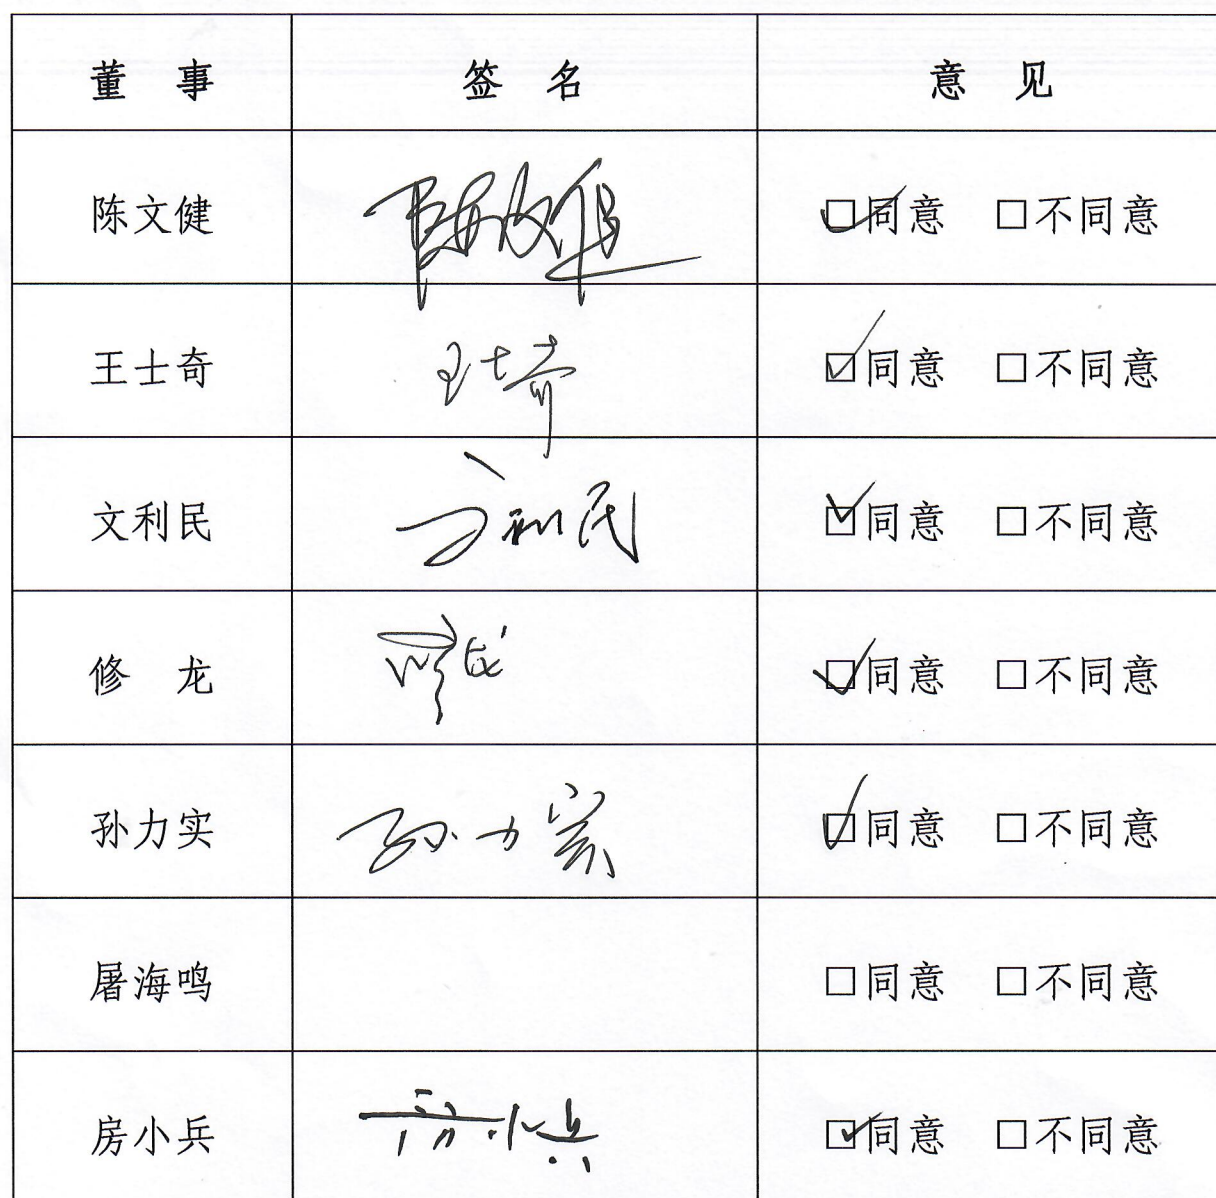 董 事 签 名 意 见
陈文健 陈文健 ☑同意 □不同意
王士奇 王士奇 ☑同意 □不同意
文利民 文利民 ☑同意 □不同意
修 龙 修龙 ☑同意 □不同意
孙力实 孙力实 ☑同意 □不同意
屠海鸣 □同意 □不同意
房小兵 房小兵 ☑同意 □不同意